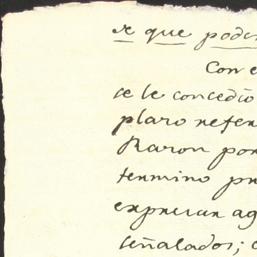 se que poder
Con e
se le concedió
plazo refer
Razon por
termino pr
expresan ag
señalados; c